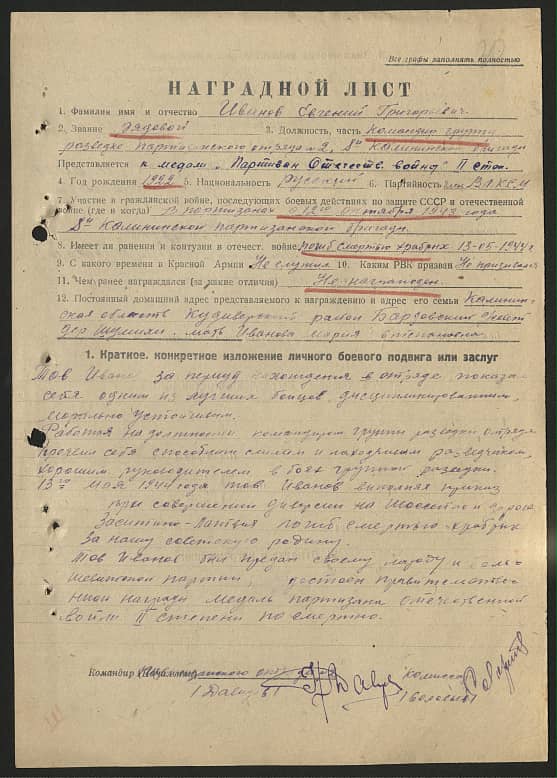 Все графы заполнять полностью
НАГРАДНОЙ ЛИСТ
1. Фамилия имя и отчество Иванов Евгений Григорьевич.
2. Звание рядовой 3. Должность, часть командир группы
разведки партизанского отряда №2, 8й Калининской бригады
Представляется к медали „Партизан Отечеств. войны" II степ.
4. Год рождения 1922 5. Национальность русский 6. Партийность член ВЛКСМ
7. Участие в гражданской войне, последующих боевых действиях по защите СССР и отечественной
войне (где и когда) В партизанах с октября 1943 года
8й Калининской партизанской бригады.
8. Имеет ли ранения и контузии в отечест. войне погиб смертью храбрых 13-05-1944г
9. С какого времени в Красной Армии Не служил 10. Каким РВК призван Не призывался
11. Чем ранее награжден (за какие отличия) Не награжден.
12. Постоянный домашний адрес представляемого к награждению и адрес его семьи Калинин-
ская область Кудеверский район
дер Шумихи. мать Иванова Мария Степановна
1. Краткое, конкретное изложение личного боевого подвига или заслуг
Тов Иванов за период нахождения в отряде показал
себя одним из лучших бойцов, дисциплинированным,
морально устойчивым.
Работая на должности командиром группы разведки отряда
проявил себя способным смелым и находчивым разведчиком,
хорошим руководителем в боях группы разведки.
13го мая 1944 года тов Иванов выполняя приказ
при совершении диверсии на шоссейной дороге
Латвия погиб смертью храбрых
за нашу советскую родину.
Тов Иванов был предан своему народу и боль-
шевитской партии, достоин правительствен-
ной награды медаль партизана отечественной
войны II степени посмертно.
Командир
комиссар